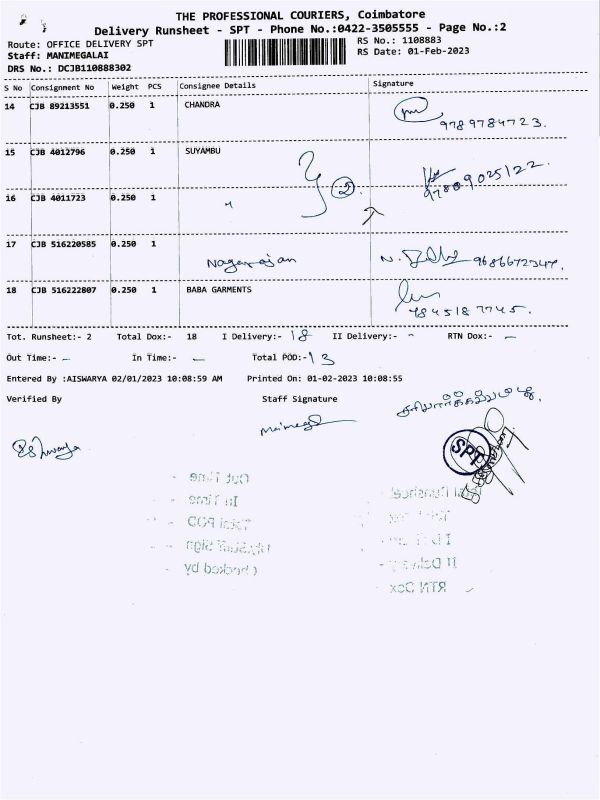 THE PROFESSIONAL COURIERS, Coimbatore
Delivery Runsheet - SPT - Phone No.:0422-3505555 - Page No.:2
Route: OFFICE DELIVERY SPT
RS No.: 1108883
Staff: MANIMEGALAI
RS Date: 01-Feb-2023
DRS No.: DCJB110888302
S No Consignment No Weight PCS Consignee Details Signature
14 CJB 89213551 0.250 1 CHANDRA
9789784723.
15 CJB 4012796 0.250 1 SUYAMBU
2
9789025122.
16 CJB 4011723 0.250 1 "
17 CJB 516220585 0.250 1
Nagarajan
9686672347.
18 CJB 516222807 0.250 1 BABA GARMENTS
7845187745.
Tot. Runsheet:- 2 Total Dox:- 18 I Delivery:- 18 II Delivery:- - RTN Dox:- -
Out Time:- - In Time:- - Total POD:- 13
Entered By :AISWARYA 02/01/2023 10:08:59 AM Printed On: 01-02-2023 10:08:55
Verified By Staff Signature
SPT
Out Time -
In Time -
Total POD -
Checked by -
RTN Dox -